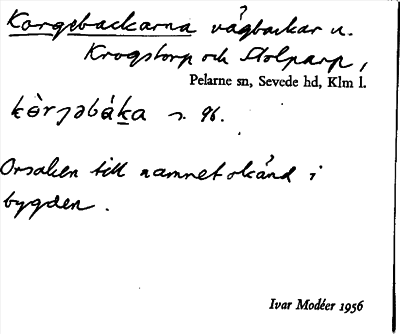 Korgebackarna vägbackar n.
Krogstorp och Stolparp,
Pelarne sn, Sevede hd, Klm l.
s. 96.
Orsaken till namnet okänd i
bygden.
Ivar Modéer 1956